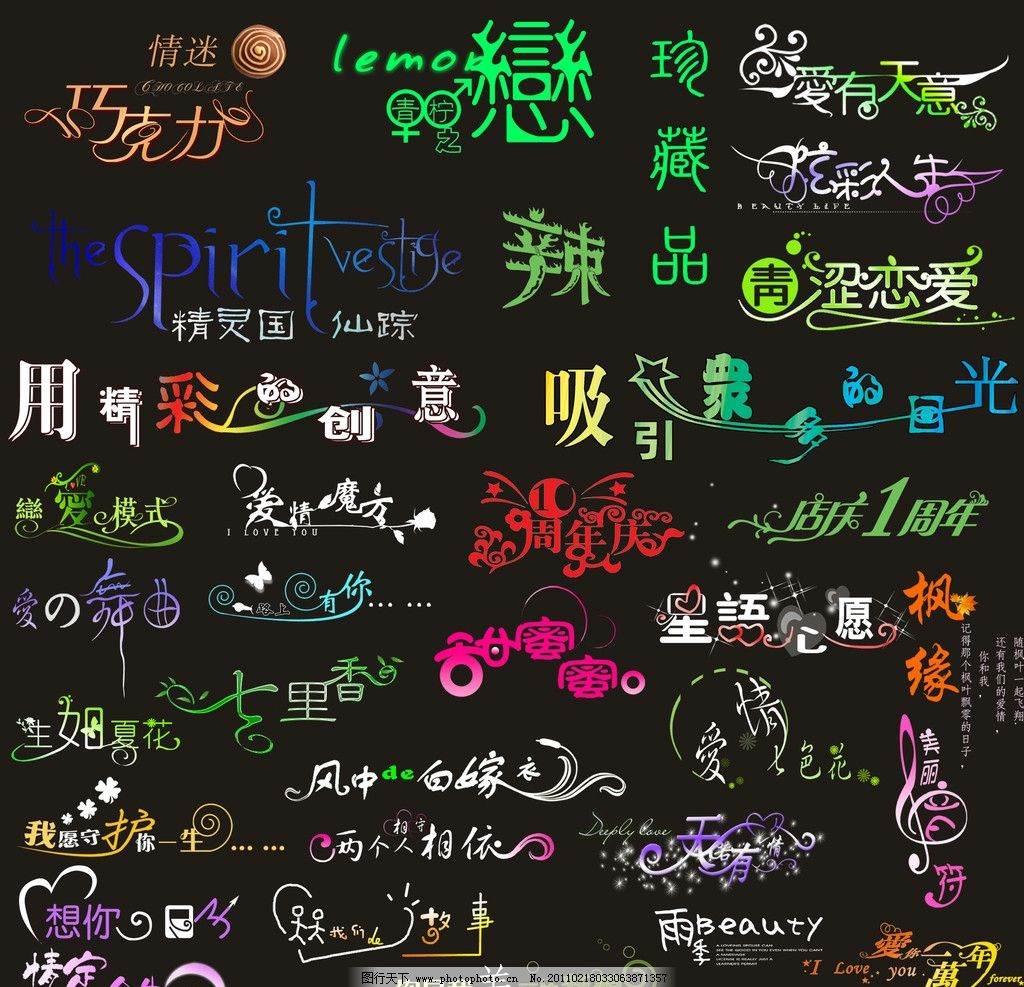 情迷
CHOCOLATE
巧克力
lemon
青柠之
戀
珍藏品
愛有天意
炫彩人生
BEAUTY LIFE
the spirit vestige
精灵国 仙踪
辣
青涩恋爱
用精彩的创意
吸引眾多的目光
戀愛模式
爱情魔方
I LOVE YOU
10周年庆
店庆1周年
愛の舞曲
路上有你……
甜蜜蜜
星語心愿
枫缘
随枫叶一起飞翔
还有我们的爱情，
你和我
记得那个枫叶飘零的日子，
生如夏花
七里香
爱情七色花
美丽音符
风中de白嫁衣
我愿守护你一生……
相守
两个人相依
Deeply love
天若有情
想你
我们de故事
雨季Beauty
A LOVING SPOUSE CAN
SEE THE GOOD IN YOU EVEN WHEN YOU CAN'T
愛你一萬年
I Love you
forever
情定
图行天下 www.photophoto.cn No.20110218033063871357